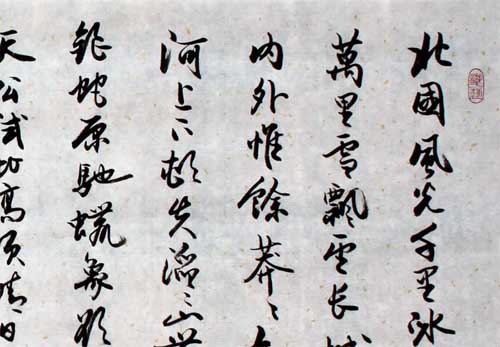 北國風光千里冰
萬里雪飄望長城
內外惟餘莽〻
河上下頓失滔〻山舞
銀蛇原馳蠟象欲
天公試比高須晴日